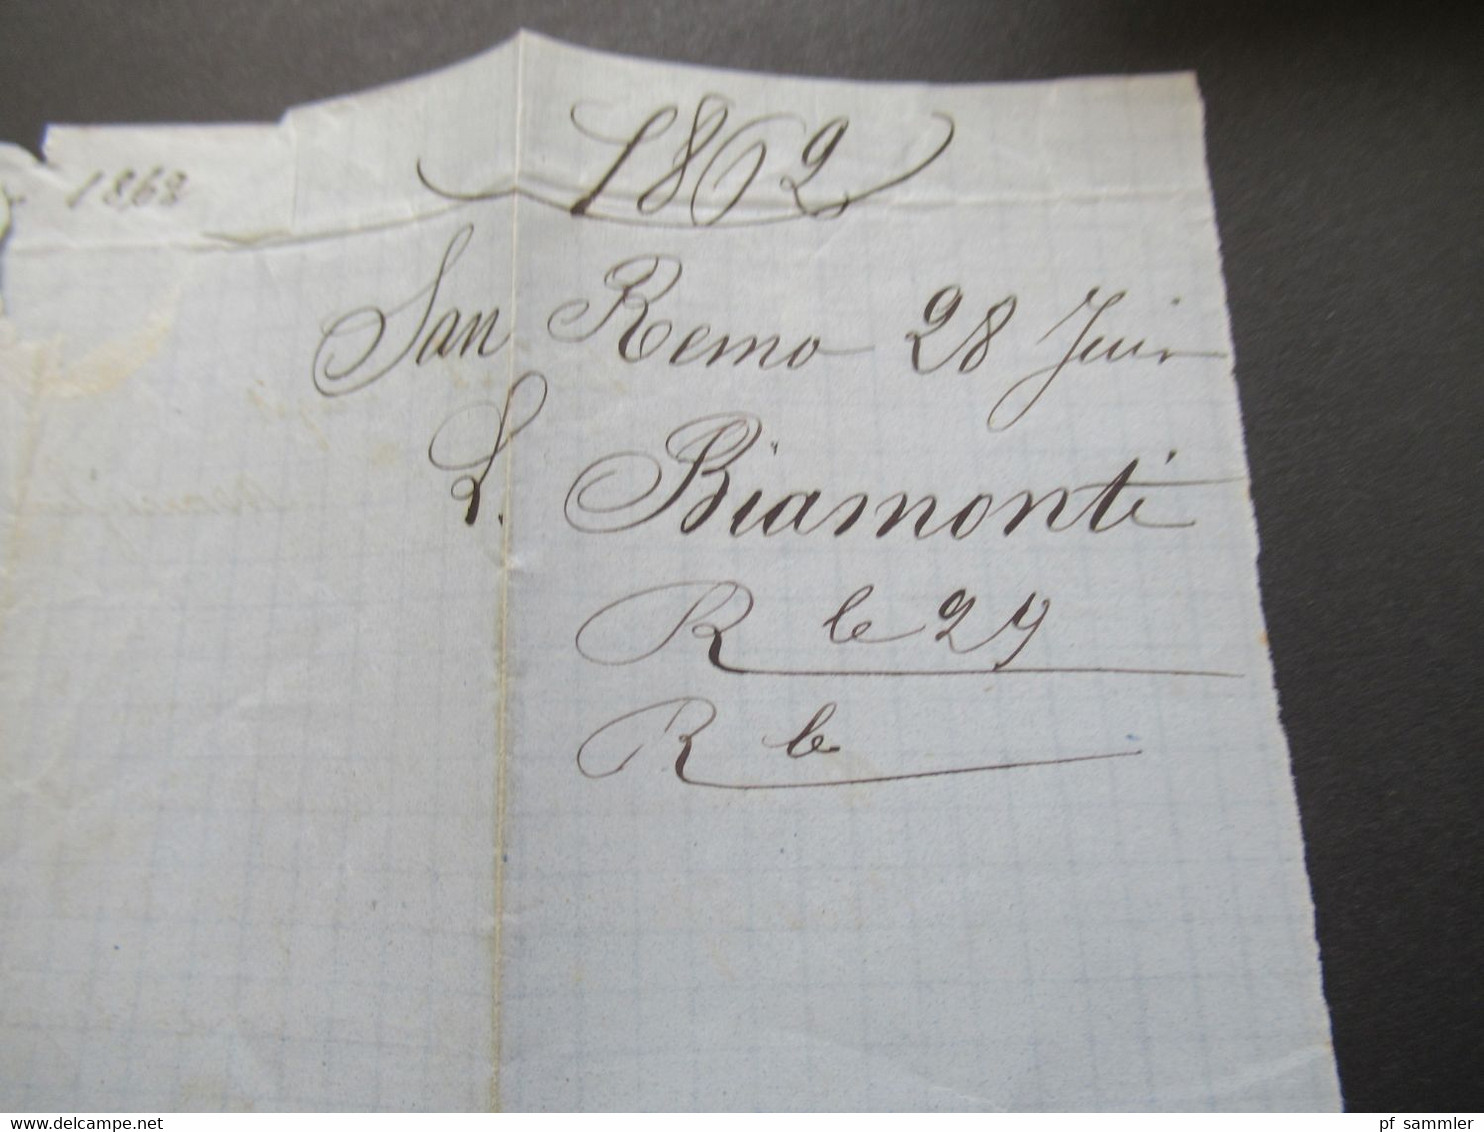 1862
1862
San Remo 28 Juin
L. Biamonti
R le 29
R le
delcampe.net
pf sammler